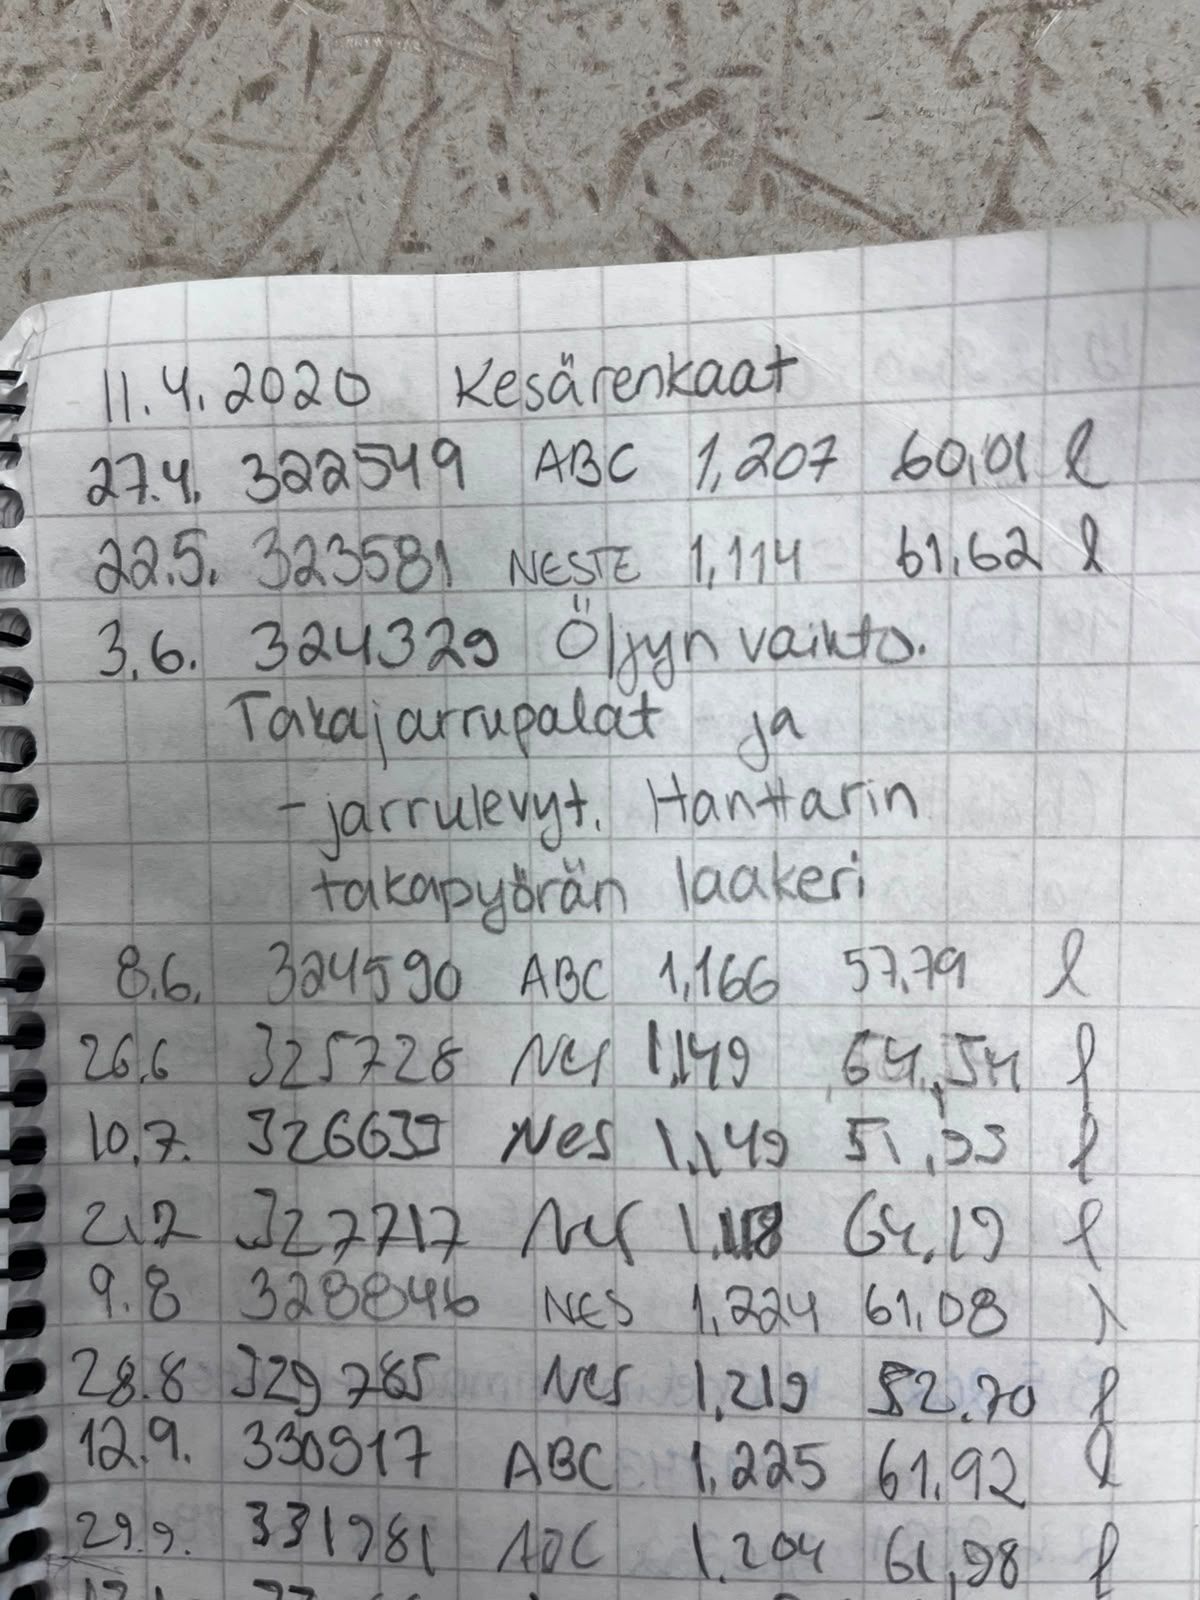 11.4.2020 Kesärenkaat
27.4. 322549 ABC 1,207 60,01 l
22.5. 323581 NESTE 1,114 61,62 l
3.6. 324329 Öljyn vaihto.
Takajarrupalat ja
-jarrulevyt. Hanttarin
takapyörän laakeri
8.6. 324590 ABC 1,166 57,79 l
26.6 325728 Nes 1,149 64,54 l
10.7. 326639 Nes 1,149 51,93 l
21.7 327717 Nes 1,118 64,19 l
9.8 328846 NES 1,224 61,08 l
28.8 329785 Nes 1,219 52,70 l
12.9. 330917 ABC 1,225 61,92 l
29.9. 331981 ABC 1,204 61,98 l